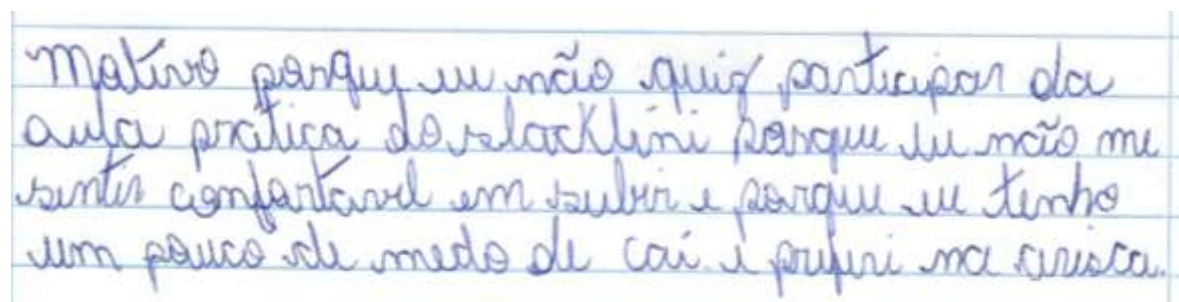 Motivo porque eu não quiz participar da
aula pratica do slackline porque eu não me
sentir confortavel em subir e porque eu tenho
um pouco de medo de cai e preferi na arisca.